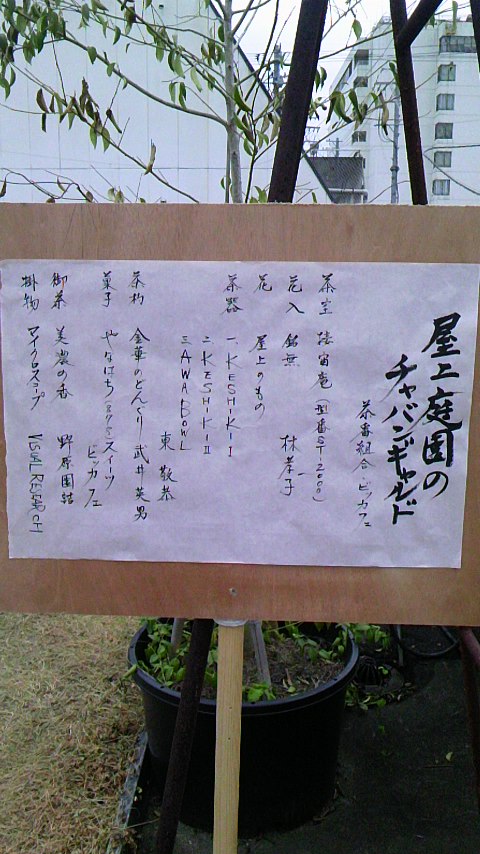 屋上庭園の
チャバンギャルド
茶番組合・ビッカフェ
茶室 接宙庵(型番ST-2000)
花入 銘無 林孝子
花 屋上のもの
茶器 一 KESHIKI-I
二 KESHIKI-II
三 AWA BOWL
東 敬恭
茶杓 金華のどんぐり 武井英男
菓子 やなはち(878)スイーツ
ビッカフェ
御茶 美濃の香 野原園詰
掛物 マイクロスコープ VISUAL RESEARCH